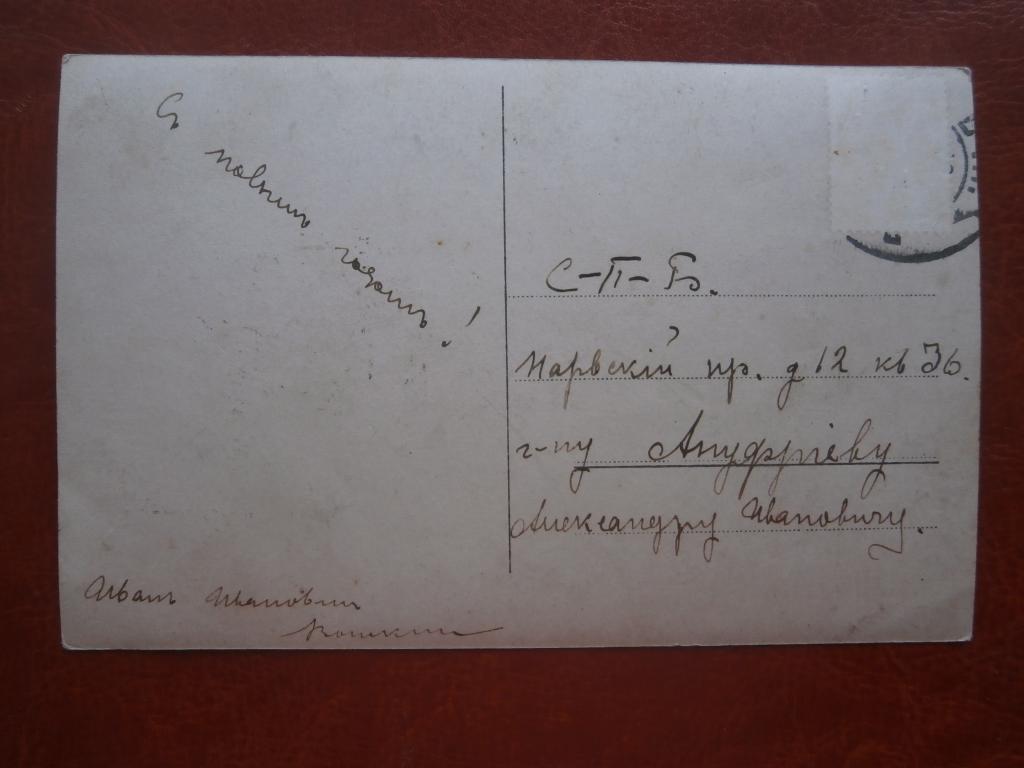 Съ
новымъ
годомъ!
С-П-Б.
Нарвскій пр. д 12 кв 36.
г-ну Ануфріеву
Александру Ивановичу.
Иванъ Ивановичъ
Кошкин